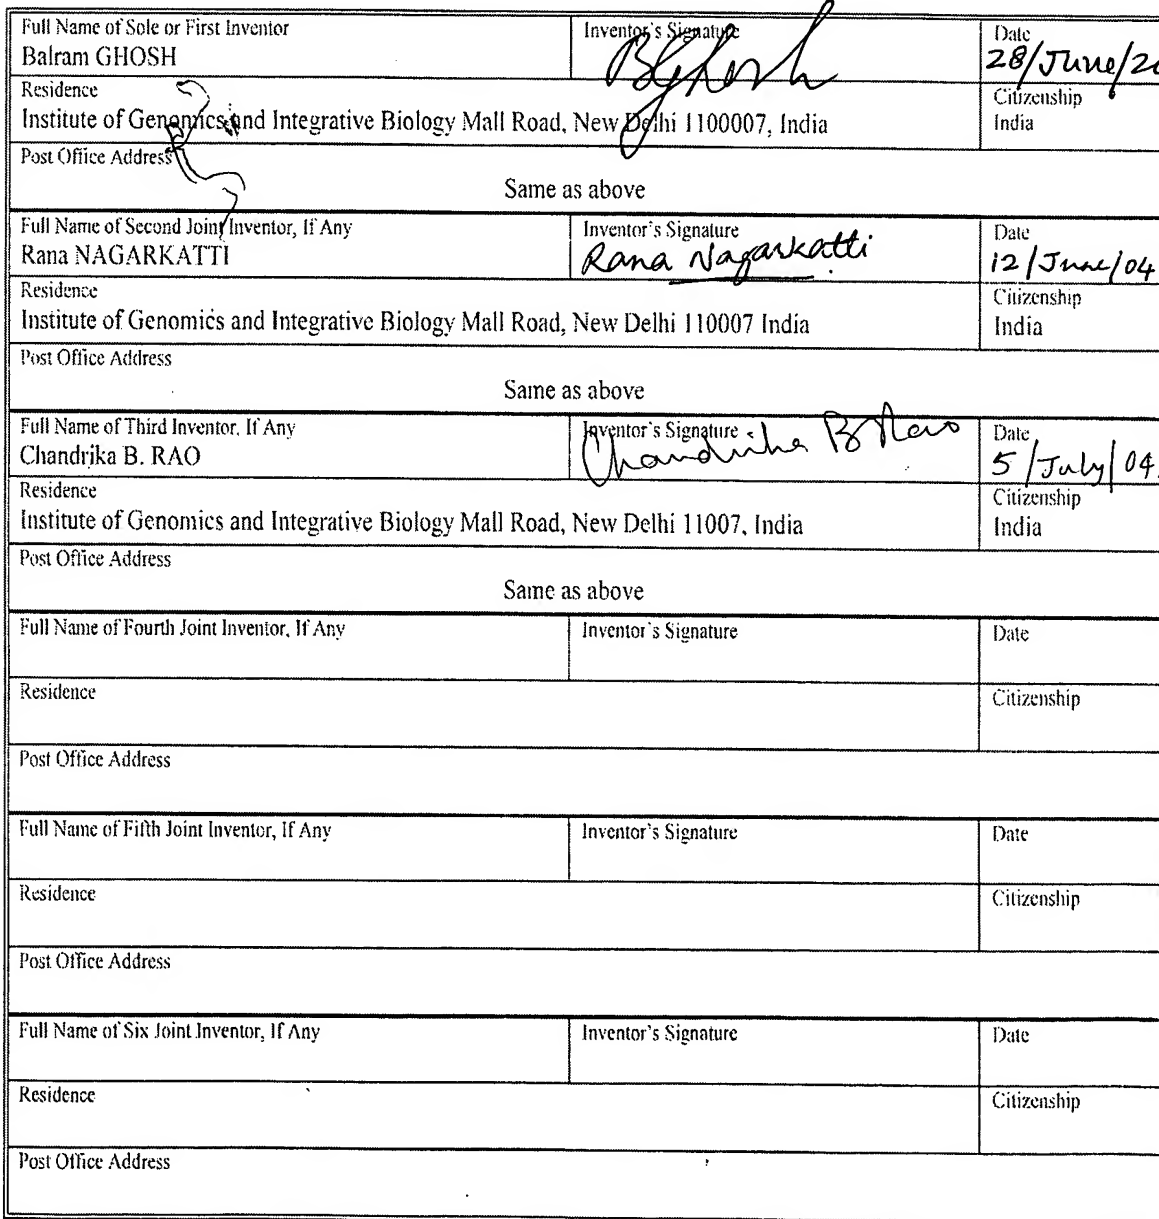 Full Name of Sole or First Inventor Inventor's Signature Date
Balram GHOSH BGhosh 28/June/20
Residence Citizenship
Institute of Genomics and Integrative Biology Mall Road, New Delhi 1100007, India India
Post Office Address
Same as above
Full Name of Second Joint Inventor, If Any Inventor's Signature Date
Rana NAGARKATTI Rana Nagarkatti 12/June/04
Residence Citizenship
Institute of Genomics and Integrative Biology Mall Road, New Delhi 110007 India India
Post Office Address
Same as above
Full Name of Third Inventor, If Any Inventor's Signature Date
Chandrika B. RAO Chandrika B Rao 5/July/04.
Residence Citizenship
Institute of Genomics and Integrative Biology Mall Road, New Delhi 11007, India India
Post Office Address
Same as above
Full Name of Fourth Joint Inventor, If Any Inventor's Signature Date
Residence Citizenship
Post Office Address
Full Name of Fifth Joint Inventor, If Any Inventor's Signature Date
Residence Citizenship
Post Office Address
Full Name of Six Joint Inventor, If Any Inventor's Signature Date
Residence Citizenship
Post Office Address